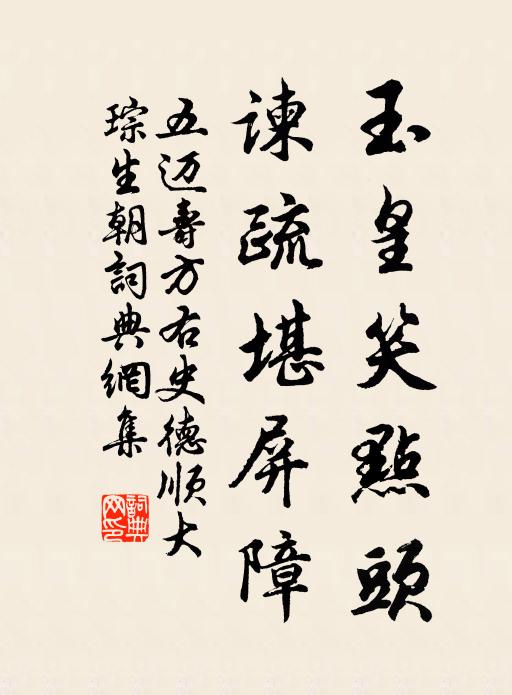 玉皇笑點頭
諫疏堪屏障
五迈壽方右史德順大
琮生朝詞典網集
詞典网印